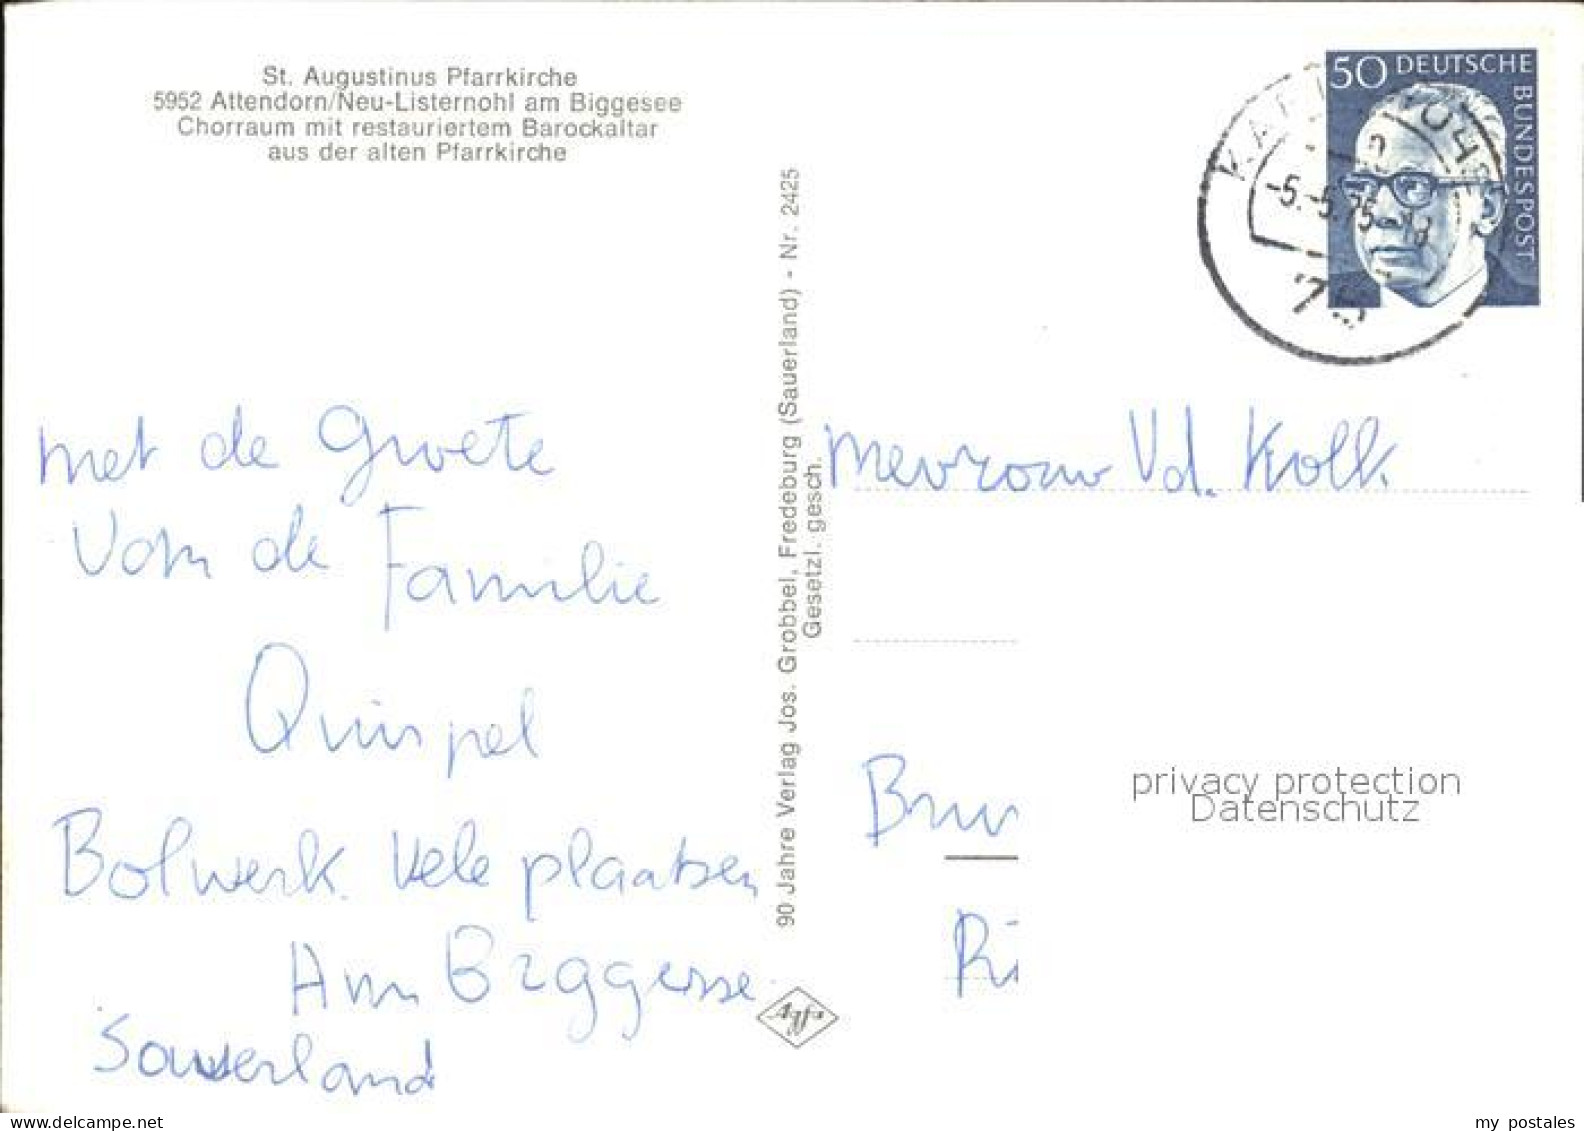 St. Augustinus Pfarrkirche
5952 Attendorn/Neu-Listernohl am Biggesee
Chorraum mit restauriertem Barockaltar
aus der alten Pfarrkirche
met de Groete
Vom de Familie
Quispel
Bolwerk. Vele plaatsen
Am Biggersee
Sauerland
90 Jahre Verlag Jos. Grobbel, Fredeburg (Sauerland) - Nr. 2425
Gesetzl. gesch.
Agfa
50 DEUTSCHE
BUNDESPOST
-5.-5.75-18
75
Mevrouw Vd. Kolk
Bru
Ri
privacy protection
Datenschutz
my postales
www.delcampe.net